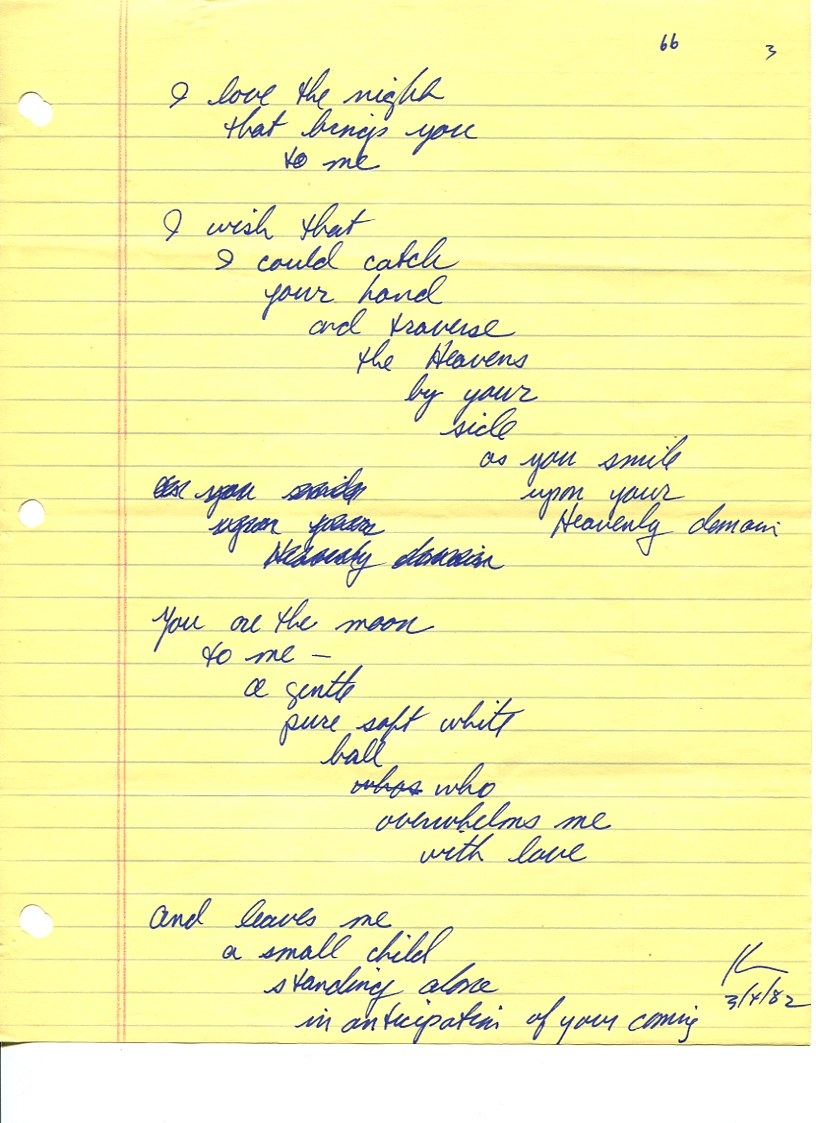 66 3
I love the night
that brings you
to me
I wish that
I could catch
your hand
and traverse
the Heavens
by your
side
as you smile
upon your
Heavenly domain
as you smile
upon your
Heavenly domain
You are the moon
to me —
a gentle
pure soft white
ball
who
overwhelms me
with love
and leaves me
a small child
standing alone
in anticipation of your coming
K
3/4/82